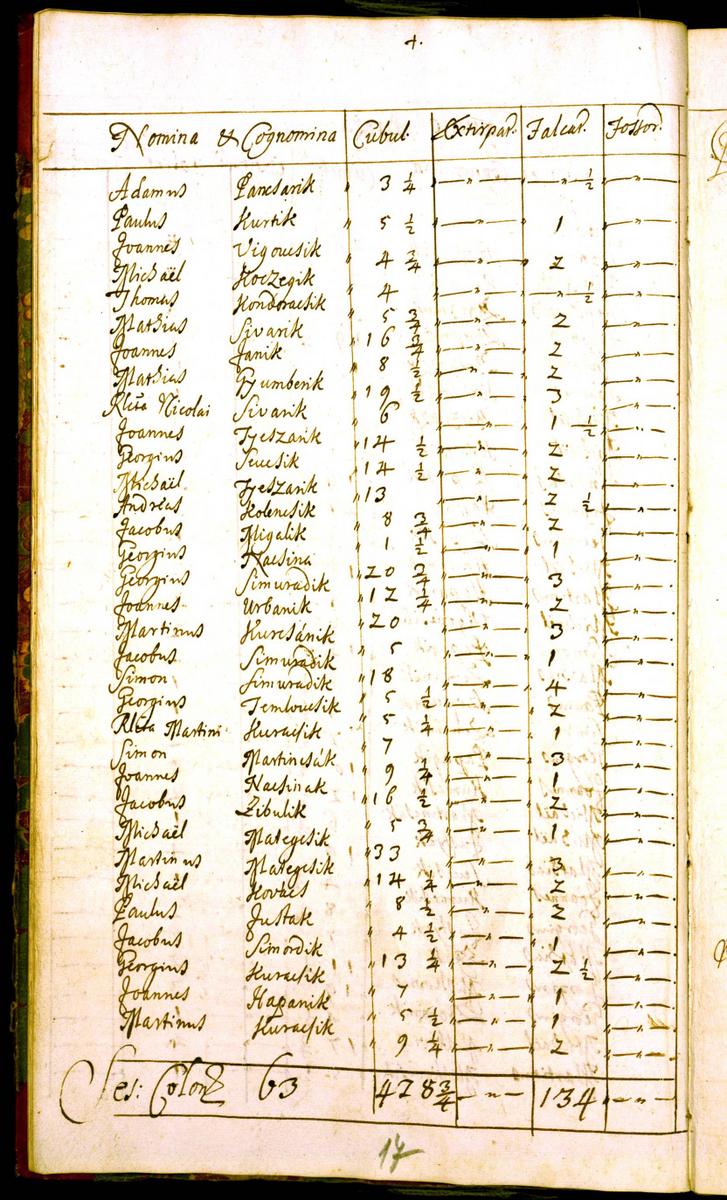 4.
Nomina & Cognomina Cubul. Extirpat. Falcat. Fossor.
Adamus Pancsarik " 3 1/4 —"— —" 1/2 —"—
Paulus Kurtik " 5 1/2 —"— 1 —"—
Joannes Vigovcsik " 4 3/4 —"— 2 —"—
Michaël Koczegik " 4 —"— —" 1/2 —"—
Thomas Kondoracsik " 5 3/4 —"— 2 —"—
Mathias Sivarik " 16 3/4 —"— 2 —"—
Joannes Janik " 8 1/2 —"— 2 —"—
Mathias Gyumberik " 19 1/2 —"— 3 —"—
Rlta Nicolai Sivarik " 6 —"— 1 1/2 —"—
Joannes Tyeszarik " 14 1/2 —"— 2 —"—
Georgius Sevcsik " 14 1/2 —"— 2 —"—
Michaël Tyeszarik " 13 —"— 2 1/2 —"—
Andreas Kolencsik " 8 3/4 —"— 2 —"—
Jacobus Migalik " 1 1/2 —"— 1 —"—
Georgius Kacsina " 20 3/4 —"— 3 —"—
Georgius Simuradik " 12 1/4 —"— 2 —"—
Joannes Urbanik " 20 —"— 3 —"—
Martinus Kurcsánik " 5 —"— 1 —"—
Jacobus Simuradik " 18 —"— 4 —"—
Simon Simuradik " 5 1/2 —"— 2 —"—
Georgius Temlovcsik " 5 1/4 —"— 1 —"—
Rlta Martini Kuracsik " 7 —"— 3 —"—
Simon Martincsak " 9 1/4 —"— 1 —"—
Joannes Nacsinak " 16 1/2 —"— 2 —"—
Jacobus Zibulik " 5 3/4 —"— 1 —"—
Michaël Mategcsik " 33 —"— 3 —"—
Martinus Mategcsik " 14 1/4 —"— 2 —"—
Michaël Kovacs " 8 1/2 —"— 2 —"—
Paulus Justak " 4 1/2 —"— 1 —"—
Jacobus Simordik " 13 1/4 —"— 2 1/2 —"—
Georgius Kuracsik " 7 —"— 1 —"—
Joannes Hapanik " 5 1/2 —"— 1 —"—
Martinus Kuracsik " 9 1/4 —"— 2 —"—
Ses: Colon 63 428 3/4 —"— 134 —"—
17